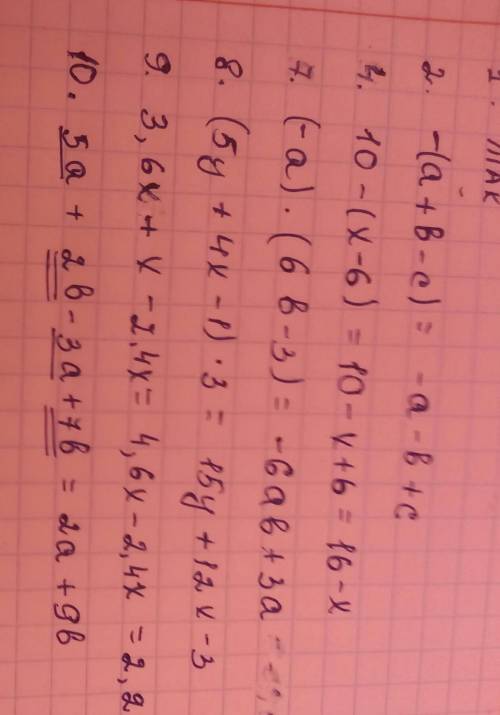 1. Так
2. -(a + b - c) = - a - b + c
4. 10 - (x - 6) = 10 - x + 6 = 16 - x
7. (-a) · (6b - 3) = -6ab + 3a
8. (5y + 4x - 1) · 3 = 15y + 12x - 3
9. 3,6x + x - 2,4x = 4,6x - 2,4x = 2,2
10. 5a + 2b - 3a + 7b = 2a + 9b